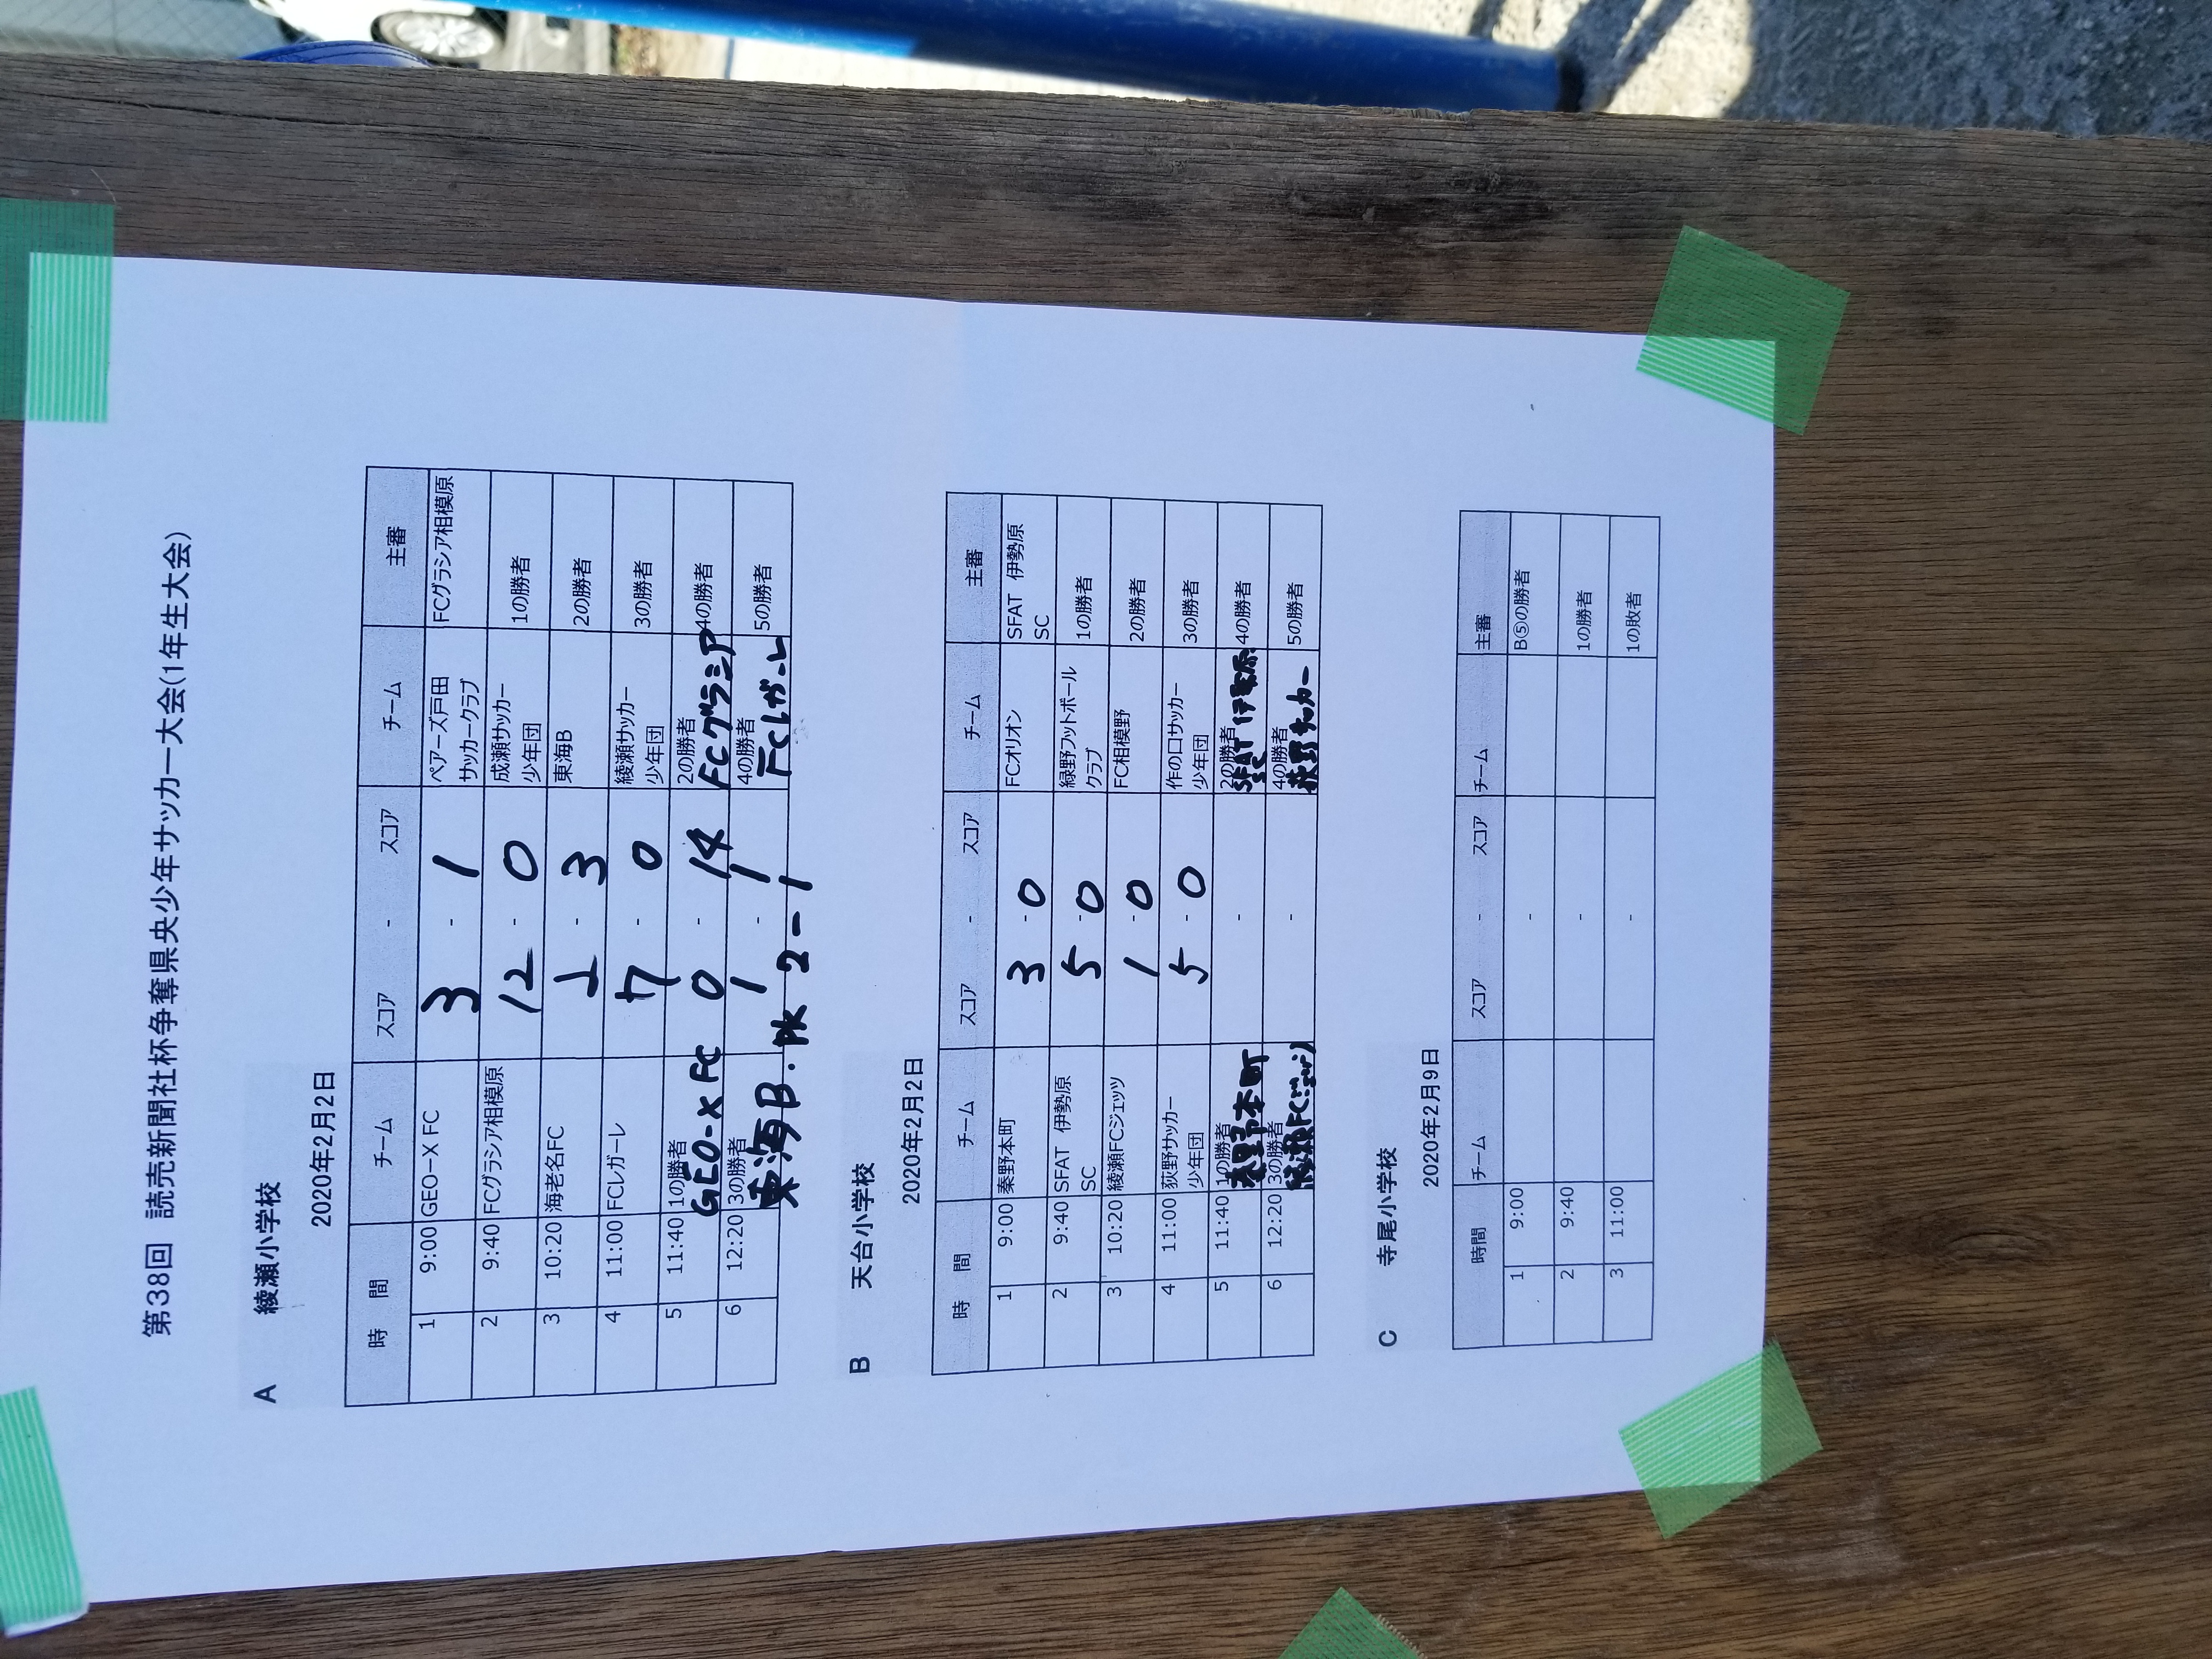 第38回　読売新聞社杯争奪県央少年サッカー大会(1年生大会)
A　綾瀬小学校
2020年2月2日
時　間　チーム　スコア　-　スコア　チーム　主審
1　9:00　GEO-X FC　3　-　1　ペアーズ戸田サッカークラブ　FCグラシア相模原
2　9:40　FCグラシア相模原　12　-　0　成瀬サッカー少年団　1の勝者
3　10:20　海老名FC　1　-　3　東海B　2の勝者
4　11:00　FCレガーレ　7　-　0　綾瀬サッカー少年団　3の勝者
5　11:40　1の勝者　GEO-X FC　0　-　14　2の勝者　FCグラシア　4の勝者
6　12:20　3の勝者　東海B.　1　-　1　4の勝者　FCレガーレ　5の勝者
PK 2-1
B　天台小学校
2020年2月2日
時　間　チーム　スコア　-　スコア　チーム　主審
1　9:00　秦野本町　3　-　0　FCオリオン　SFAT　伊勢原SC
2　9:40　SFAT　伊勢原SC　5　-　0　緑野フットボールクラブ　1の勝者
3　10:20　綾瀬FCジェッツ　1　-　0　FC相模野　2の勝者
4　11:00　荻野サッカー少年団　5　-　0　作の口サッカー少年団　3の勝者
5　11:40　1の勝者　秦野本町　-　2の勝者　SFAT伊勢原SC　4の勝者
6　12:20　3の勝者　綾瀬FC　-　4の勝者　荻野サッカー　5の勝者
C　寺尾小学校
2020年2月9日
時間　チーム　スコア　-　スコア　チーム　主審
1　9:00　-　B⑤の勝者
2　9:40　-　1の勝者
3　11:00　-　1の敗者